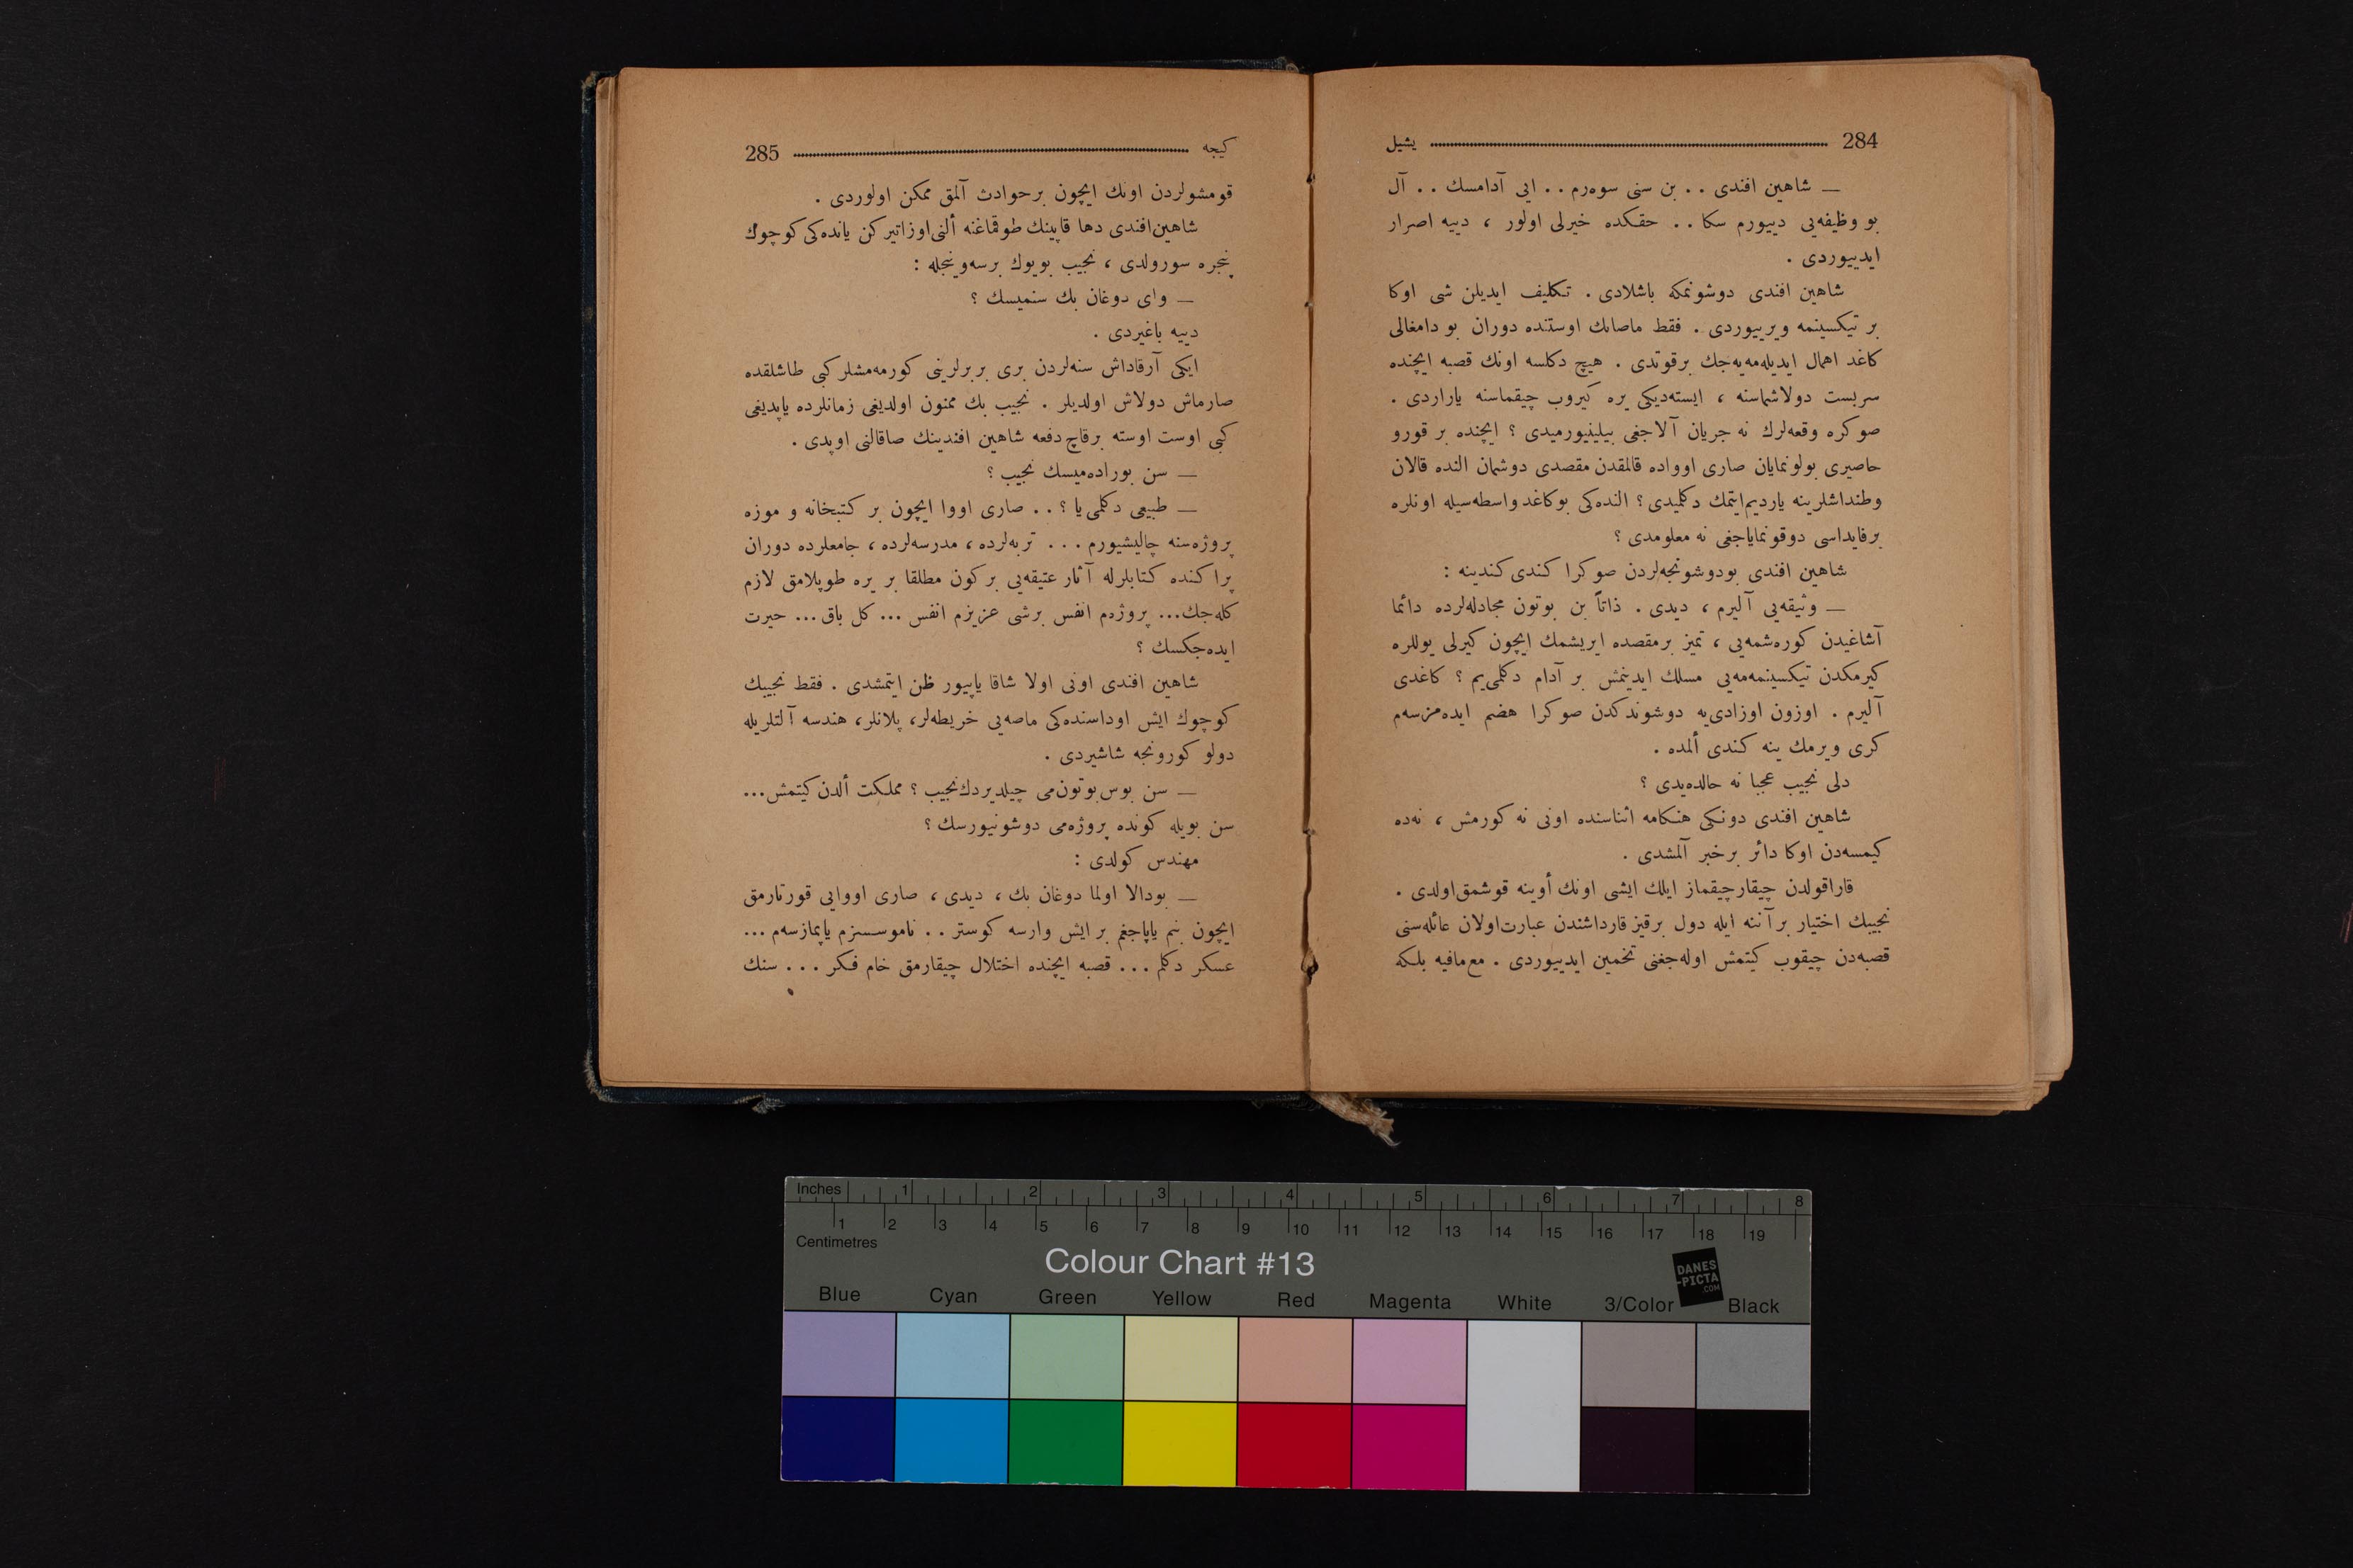 284 یشیل
— شاهین افندی . . بن سنی سوه‌رم . . ایی آدامسك . . آل
بو وظیفه‌یی دییورم سكا . . حقكده خیرلی اولور ، دییه اصرار
ایدییوردی .
شاهین افندی دوشونمكه باشلادی . تكلیف ایدیلن شی اوكا
بر تیكسینمه ویرییوردی . فقط ماصانك اوستنده دوران بو دامغالی
كاغد اهمال ایدیله‌مه‌یه‌جك برقوتدی . هیچ دكلسه اونك قصبه ایچنده
سربست دولاشماسنه ، ایسته‌دیكی یره كیروب چیقماسنه یاراردی .
صوكره وقعه‌لرك نه جریان آلاجغی بیلینیورمیدی ؟ ایچنده بر قورو
حاصیری بولونمایان صاری اوواده قالمقدن مقصدی دوشمان النده قالان
وطنداشلرینه یاردیم‌ایتمك دكلمیدی ؟ النده‌كی بوكاغد واسطه‌سیله اونلره
برفایداسی دوقونمایاجغی نه معلومدی ؟
شاهین افندی بودوشونجه‌لردن صوكرا كندی كندینه :
— وثیقه‌یی آلیرم ، دیدی . ذاتاً بن بوتون مجادله‌لرده دائما
آشاغیدن كوره‌شمه‌یی ، تمیز برمقصده ایریشمك ایچون كیرلی یوللره
كیرمكدن تیكسینمه‌مه‌یی مسلك ایدینمش بر آدام دكلمی‌یم ؟ كاغدی
آلیرم . اوزون اوزادی‌یه دوشوندكدن صوكرا هضم ایده‌مزسه‌م
كری ویرمك ینه كندی ألمده .
دلی نجیب عجبا نه حالده‌یدی ؟
شاهین افندی دونكی هنكامه اثناسنده اونی نه كورمش ، نه‌ده
كیمسه‌دن اوكا دائر برخبر آلمشدی .
قاراقولدن چیقارچیقماز ایلك ایشی اونك أوینه قوشمق‌اولدی .
نجیبك اختیار بر آننه ایله دول برقیز قارداشندن عبارت‌اولان عائله‌سنی
قصبه‌دن چیقوب كیتمش اوله‌جغنی تخمین ایدییوردی . مع‌مافیه بلكه
كیجه 285
قومشولردن اونك ایچون برحوادث آلمق ممكن اولوردی .
شاهین‌افندی دها قاپینك طوقماغنه ألنی‌اوزاتیركن یانده‌كی كوچوك
پنجره سورولدی ، نجیب بویوك برسه‌وینجله :
— وای دوغان بك سنمیسك ؟
دییه باغیردی .
ایكی آرقاداش سنه‌لردن بری بربرلرینی كورمه‌مشلركبی طاشلقده
صارماش دولاش اولدیلر . نجیب بك ممنون اولدیغی زمانلرده یاپدیغی
كبی اوست اوسته برقاچ دفعه شاهین افندینك صاقالنی اوپدی .
— سن بوراده‌میسك نجیب ؟
— طبیعی دكلمی یا ؟ . . صاری اووا ایچون بر كتبخانه و موزه
پروژه‌سنه چالیشیورم . . . تربه‌لرده ، مدرسه‌لرده ، جامعلرده دوران
پراكنده كتابلرله آثار عتیقه‌یی بركون مطلقا بر یره طوپلامق لازم
كله‌جك... پروژه‌م انفس برشی عزیزم انفس ... كل باق ... حیرت
ایده‌جكسك ؟
شاهین افندی اونی اولا شاقا یاپیور ظن ایتمشدی . فقط نجیبك
كوچوك ایش اوداسنده‌كی ماصه‌یی خریطه‌لر، پلانلر، هندسه آلتلریله
دولو كورونجه شاشیردی .
— سن بوس‌بوتون‌می چیلدیردك‌نجیب ؟ مملكت ألدن‌كیتمش...
سن بویله كونده پروژه‌می دوشونیورسك ؟
مهندس كولدی :
— بودالا اولما دوغان بك ، دیدی ، صاری اووایی قورتارمق
ایچون بنم یاپاجغم بر ایش وارسه كوستر . . ناموسسزم یاپمازسه‌م ...
عسكر دكلم ... قصبه ایچنده اختلال چیقارمق خام فكر ... سنك
Inches 1 2 3 4 5 6 7 8
1 2 3 4 5 6 7 8 9 10 11 12 13 14 15 16 17 18 19
Centimetres
Colour Chart #13
DANES
-PICTA
.COM
Blue Cyan Green Yellow Red Magenta White 3/Color Black